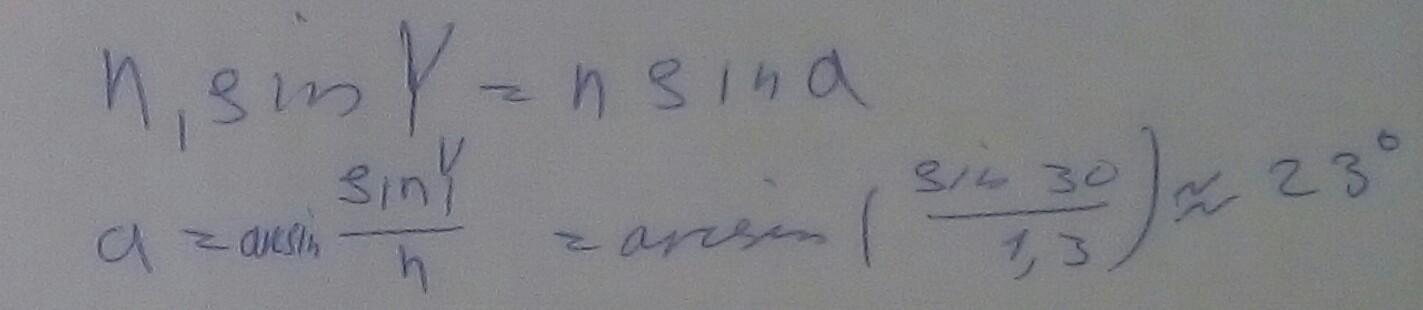 n₁ sin γ = n sin α
α = arcsin sin γ / n = arcsin ( sin 30 / 1,3 ) ≈ 23°